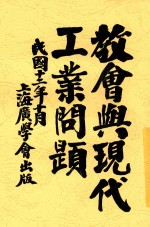 教會與現代
工業問題
民國十二年十月
上海廣學會出版